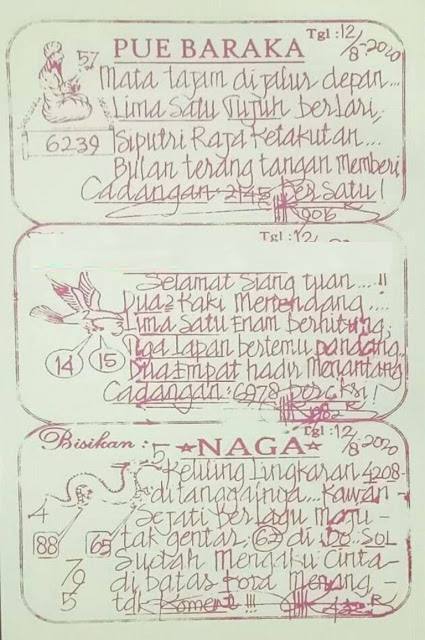 Tgl : 12/8-2020
PUE BARAKA
57
Mata tajam di jalur depan...
Lima Satu Tujuh berlari,
6239
Siputri Raja Ketakutan...
Bulan terang tangan memberi
Cadangan: 2145 bersatu!
Tgl : 12/
Selamat siang tuan....!!
Dua2 Kaki Menendang....
Lima Satu Enam berhitung,
Tiga Lapan bertemu pandang..
14 15
Dua Empat hadir Menantang
Cadangan: 6978 beraksi!
Tgl : 12/8-2020
Bisikan : NAGA
5
Keliling Lingkaran 4208-
ditanggalnya... Kawan-
Sejati Berlagu Maju-
4
tak gentar. 67 di Do. SOL
88 65
Sudah Mengaku Cinta-
di batas Kota Menang,-
79
5
tak Koment !!!